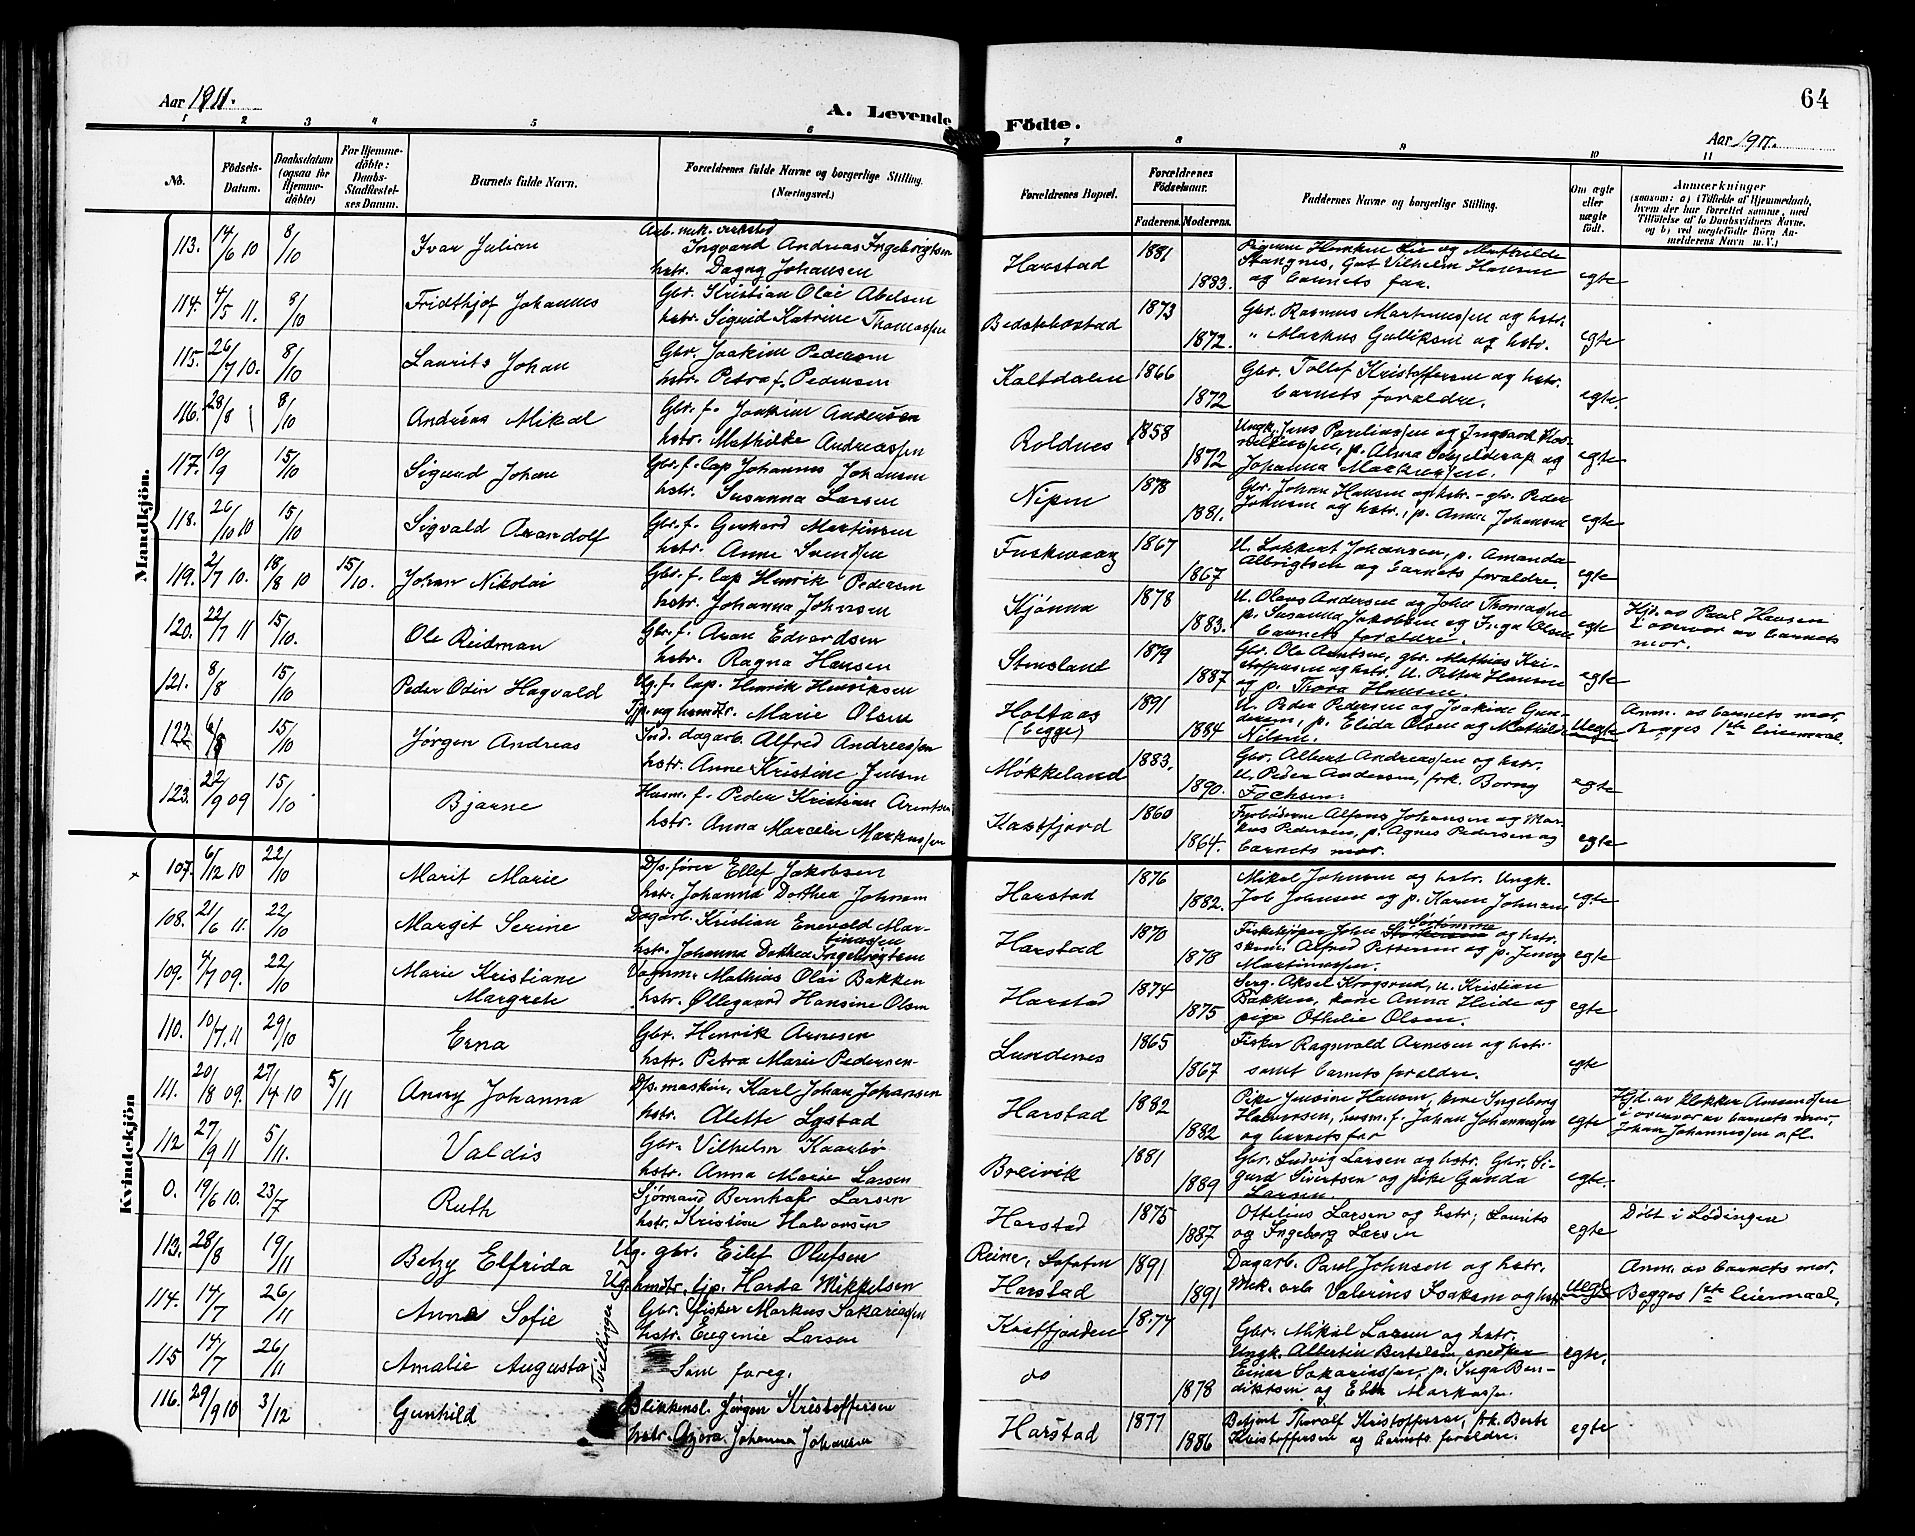 64
Aar 1911.
A. Levende Födte.
Aar 1911.
1 2 3 4 5 6 7 8 9 10 11
No.
Födsels-Datum.
Daabsdatum (ogsaa for Hjemme-döbte)
For Hjemme-döbte: Daabs-Stadfæstel-ses Datum.
Barnets fulde Navn.
Forældrenes fulde Navne og borgerlige Stilling. (Næringsvei.)
Forældrenes Bopæl.
Forældrenes Födselsaar.
Faderens. Moderens.
Faddernes Navne og borgerlige Stilling.
Om ægte eller uægte födt.
Anmærkninger
(saasom: a) i Tilfælde af Hjemmedaab, hvem der har forrettet samme, med Tilföielse af to Daabsvidners Navne, og b) ved uegtefödte Börn An-melderens Navn m. V.)
Mandkjön.
113. 14/6 10 8/10 Ivar Julian
Arb. mek. verksted Ingvard Andreas Ingebrigtsen
hstr. Dagny Johansen
Harstad 1881 1883.
Stangnes, Gat Vilhelm Hansen
og barnets far. egte
114. 4/5 11. 8/10 Fridthjof Johannes
Gbr. Kristian Olai Abelsen
hstr. Sigrid Katrine Thomassen
1873 1872.
Gbr. Rasmus Martinussen og hstr.
" Markus Gulliksen og hstr. egte
115. 26/7 10. 8/10 Laurits Johan
Gbr. Joakim Pedersen
hstr. Petra f. Pedersen
Kaltdalen 1866 1872
Gbr. Tollef Kristoffersen og hstr.
barnets forældre. egte.
116. 28/8 8/10 Andreas Mikal
Gbr. f. Joakim Andersen
hstr. Mathilde Andreassen
Roldnes 1858 1872
Johanna Markussen. egte
117. 10/9 15/10 Sigurd Johan
Gbr. f. Lap Johannes Johansen
hstr. Susanna Larsen
Nipen 1878 1881.
Gbr. Johan Hansen og hstr. - gbr. Peder
Johnsen og hstr., p. Anna Johansen egte
118. 26/10 10 15/10 Sigvald Arandolf
Gbr. f. Gerhard Martinsen
hstr. Anne Svendsen
Fuskevaag 1867 1867
U. Lokkert Johansen, p. Amanda
Albrigtsen og barnets forældre. egte
119. 2/7 10. 18/8 10 15/10. Johan Nikolai
Gbr. f. Lap Henrik Pedersen
hstr. Johanna Johnsen
Kjönna 1878 1883.
U. Olaus Andersen og John Thomassen
p. Susanna Jakobsen og Inga Olsen
barnets forældre. egte
Hjd. av Paul Hansen
i overvær av barnets
mor.
120. 22/7 11 15/10. Ole Reidman
Gbr. f. Aron Edvardsen
hstr. Ragna Hansen
Stensland 1879 1887
Gbr. Ole Arntsen, gbr. Mathias Kri-
stoffersen og hstr. U. Petter Hansen
og p. Thora Hansen. egte
121. 8/8 15/10 Peder Odin Hagvald
Ug. f. Lap. Henrik Henriksen
Tjp. og hsmdtr. Marie Olsen
Holtaas (begge) 1891 1884
U. Peder Pedersen og Joakim Gun-
dersen, p. Elida Olsen og Mathilde
Nilsen. Uegte
Anm. av barnets mor.
Begges 1ste leiermaal.
122 6/8 15/10 Jörgen Andreas
Ind. dagarb. Alfred Andreassen
hstr. Anne Kristine Jensen
Mökkeland 1883. 1890.
Gbr. Albert Andreassen og hstr.
U. Peder Andersen, frk. Borny
Fochsen. egte
123. 22/9 09 15/10. Bjarne
Husm. f. Peder Kristian Arntsen
hstr. Anna Marcelie Markussen
Kastfjord 1860 1864.
Fyrböterne Alfons Johansen og Mar-
kus Pedersen, p. Agnes Pedersen og
barnets mor. egte
Kvindekjön
107. 6/12 10 22/10 Marit Marie
D/s. förer Ellef Jakobsen
hstr. Johanna Dorthea Johnsen
Harstad 1876 1882.
Mikal Johnsen og hstr. Ungk.
Job Johnsen og p. Karen Johnsen egte
108. 21/6 11. 22/10 Margit Serine
Dagarb. Kristian Enevold Mar-
tinussen
hstr. Johanna Dorthea Ingebrigtsen
Harstad 1870 1878
Fiskekjöper John og hstr.
skom. Alfred Pettersen og p. Jenny
Martinussen. egte
109. 4/7 09. 22/10 Marie Kristiane
Margrete
Vognm. Mathias Olai Bakken
hstr. Öllegaard Hansine Olsen
Harstad 1874 1875
Serg. Aksel Krogsrud, u. Kristian
Bakken, kone Anna Heide og
pige Othilie Olsen. egte
110. 10/7.11 29/10 Erna
Gbr. Henrik Arnesen
hstr. Petra Marie Pedersen
Lundenes 1865 1867
Fisker Ragnvald Arnesen og hstr.
samt barnets forældre. egte
111. 20/8 09. 27/14 10 5/11 Anny Johanna
D/s. maskin. Karl Johan Johansen
hstr. Alette Lystad
Harstad 1882 1882
Pike Jensine Hansen, kone Ingeborg
Halvorsen, husm. f. Johan Johannessen
og barnets far egte
Hjd. av klokker Amundsen
i overvær av barnets mor,
Johan Johannessen o.fl.
112 27/9 11 5/11. Valdis
Gbr. Vilhelm Kaarbö
hstr. Anna Marie Larsen
Breivik 1881 1889
Gbr. Ludvig Larsen og hstr. Gbr. Si-
gurd Sivertsen og pike Gunda
Larsen. egte.
0. 19/6 10. 23/7 Ruth
Sjömand Bernhahr Larsen
hstr. Kristine Halvorsen
Harstad 1875 1887
Ottelius Larsen og hstr; Laurits
og Ingeborg Larsen egte
Döbt i Lödingen
113. 28/8 19/11 Betzy Elfrida
Ug. gbr. Eilef Olufsen
Ug. hmdtr. tjp. Harda Mikkelsen
Reine, Lofoten
Harstad 1891 1891
Dagarb. Paul Johnsen og hstr.
Mek. arb Valerius Isaksen og hstr Uegte
Anm. av barnets mor.
Begges 1ste leiermaal.
Tvillinger
114. 14/7 26/11 Anna Sofie
Gbr. fisker Markus Sakariassen
hstr. Eugenie Larsen
Kastfjorden 1877
Gbr. Mikal Larsen og hstr.
Ungk. Albertin Bertelsen, snedker egte.
115 14/7 26/11 Amalie Augusta
Som foreg.
do 1878
Einar Sakariassen, p. Inga Ben-
diktsen og Ellen Markussen.
116. 29/9 10 3/12 Gunhild
Blikkensl. Jörgen Kristoffersen
hstr. Gyora Johanna Johansen
Harstad 1877 1886
Betjent Thoralf Kristoffersen, frk. Berte
Kristoffersen og barnets forældre. egte